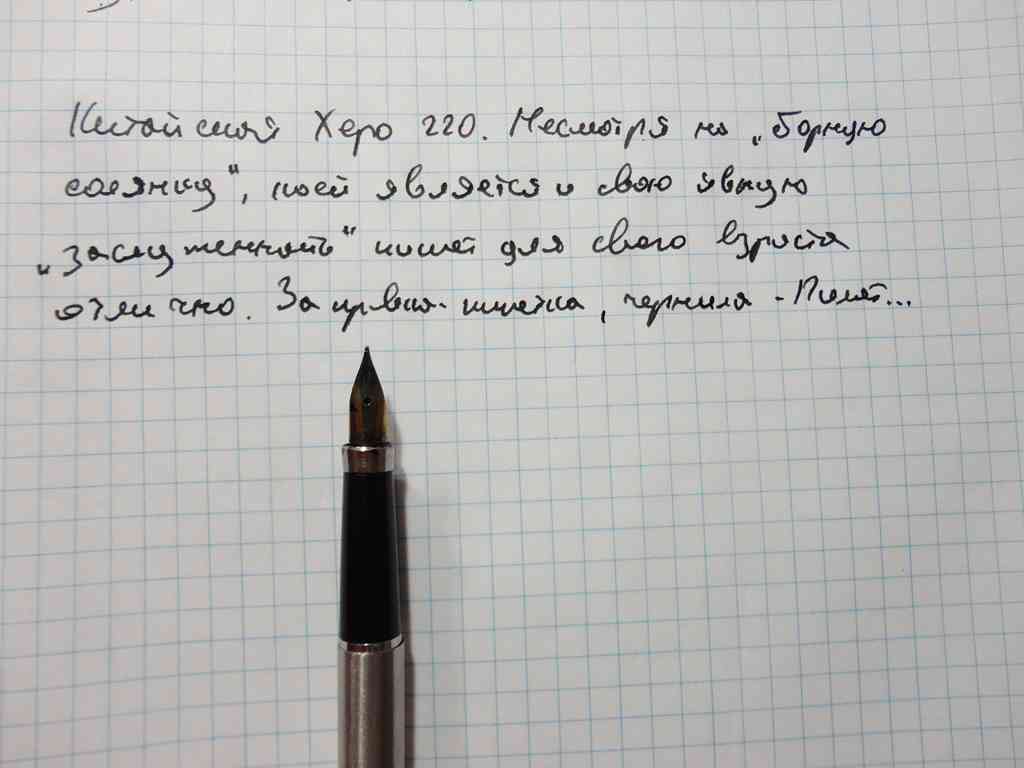 Китайская Херо 220. Несмотря на „борную
солянку“, коей является и свою явную
„заслуженность“ пишет для своего возраста
отлично. Заправка - пипетка, чернила - Пилот...